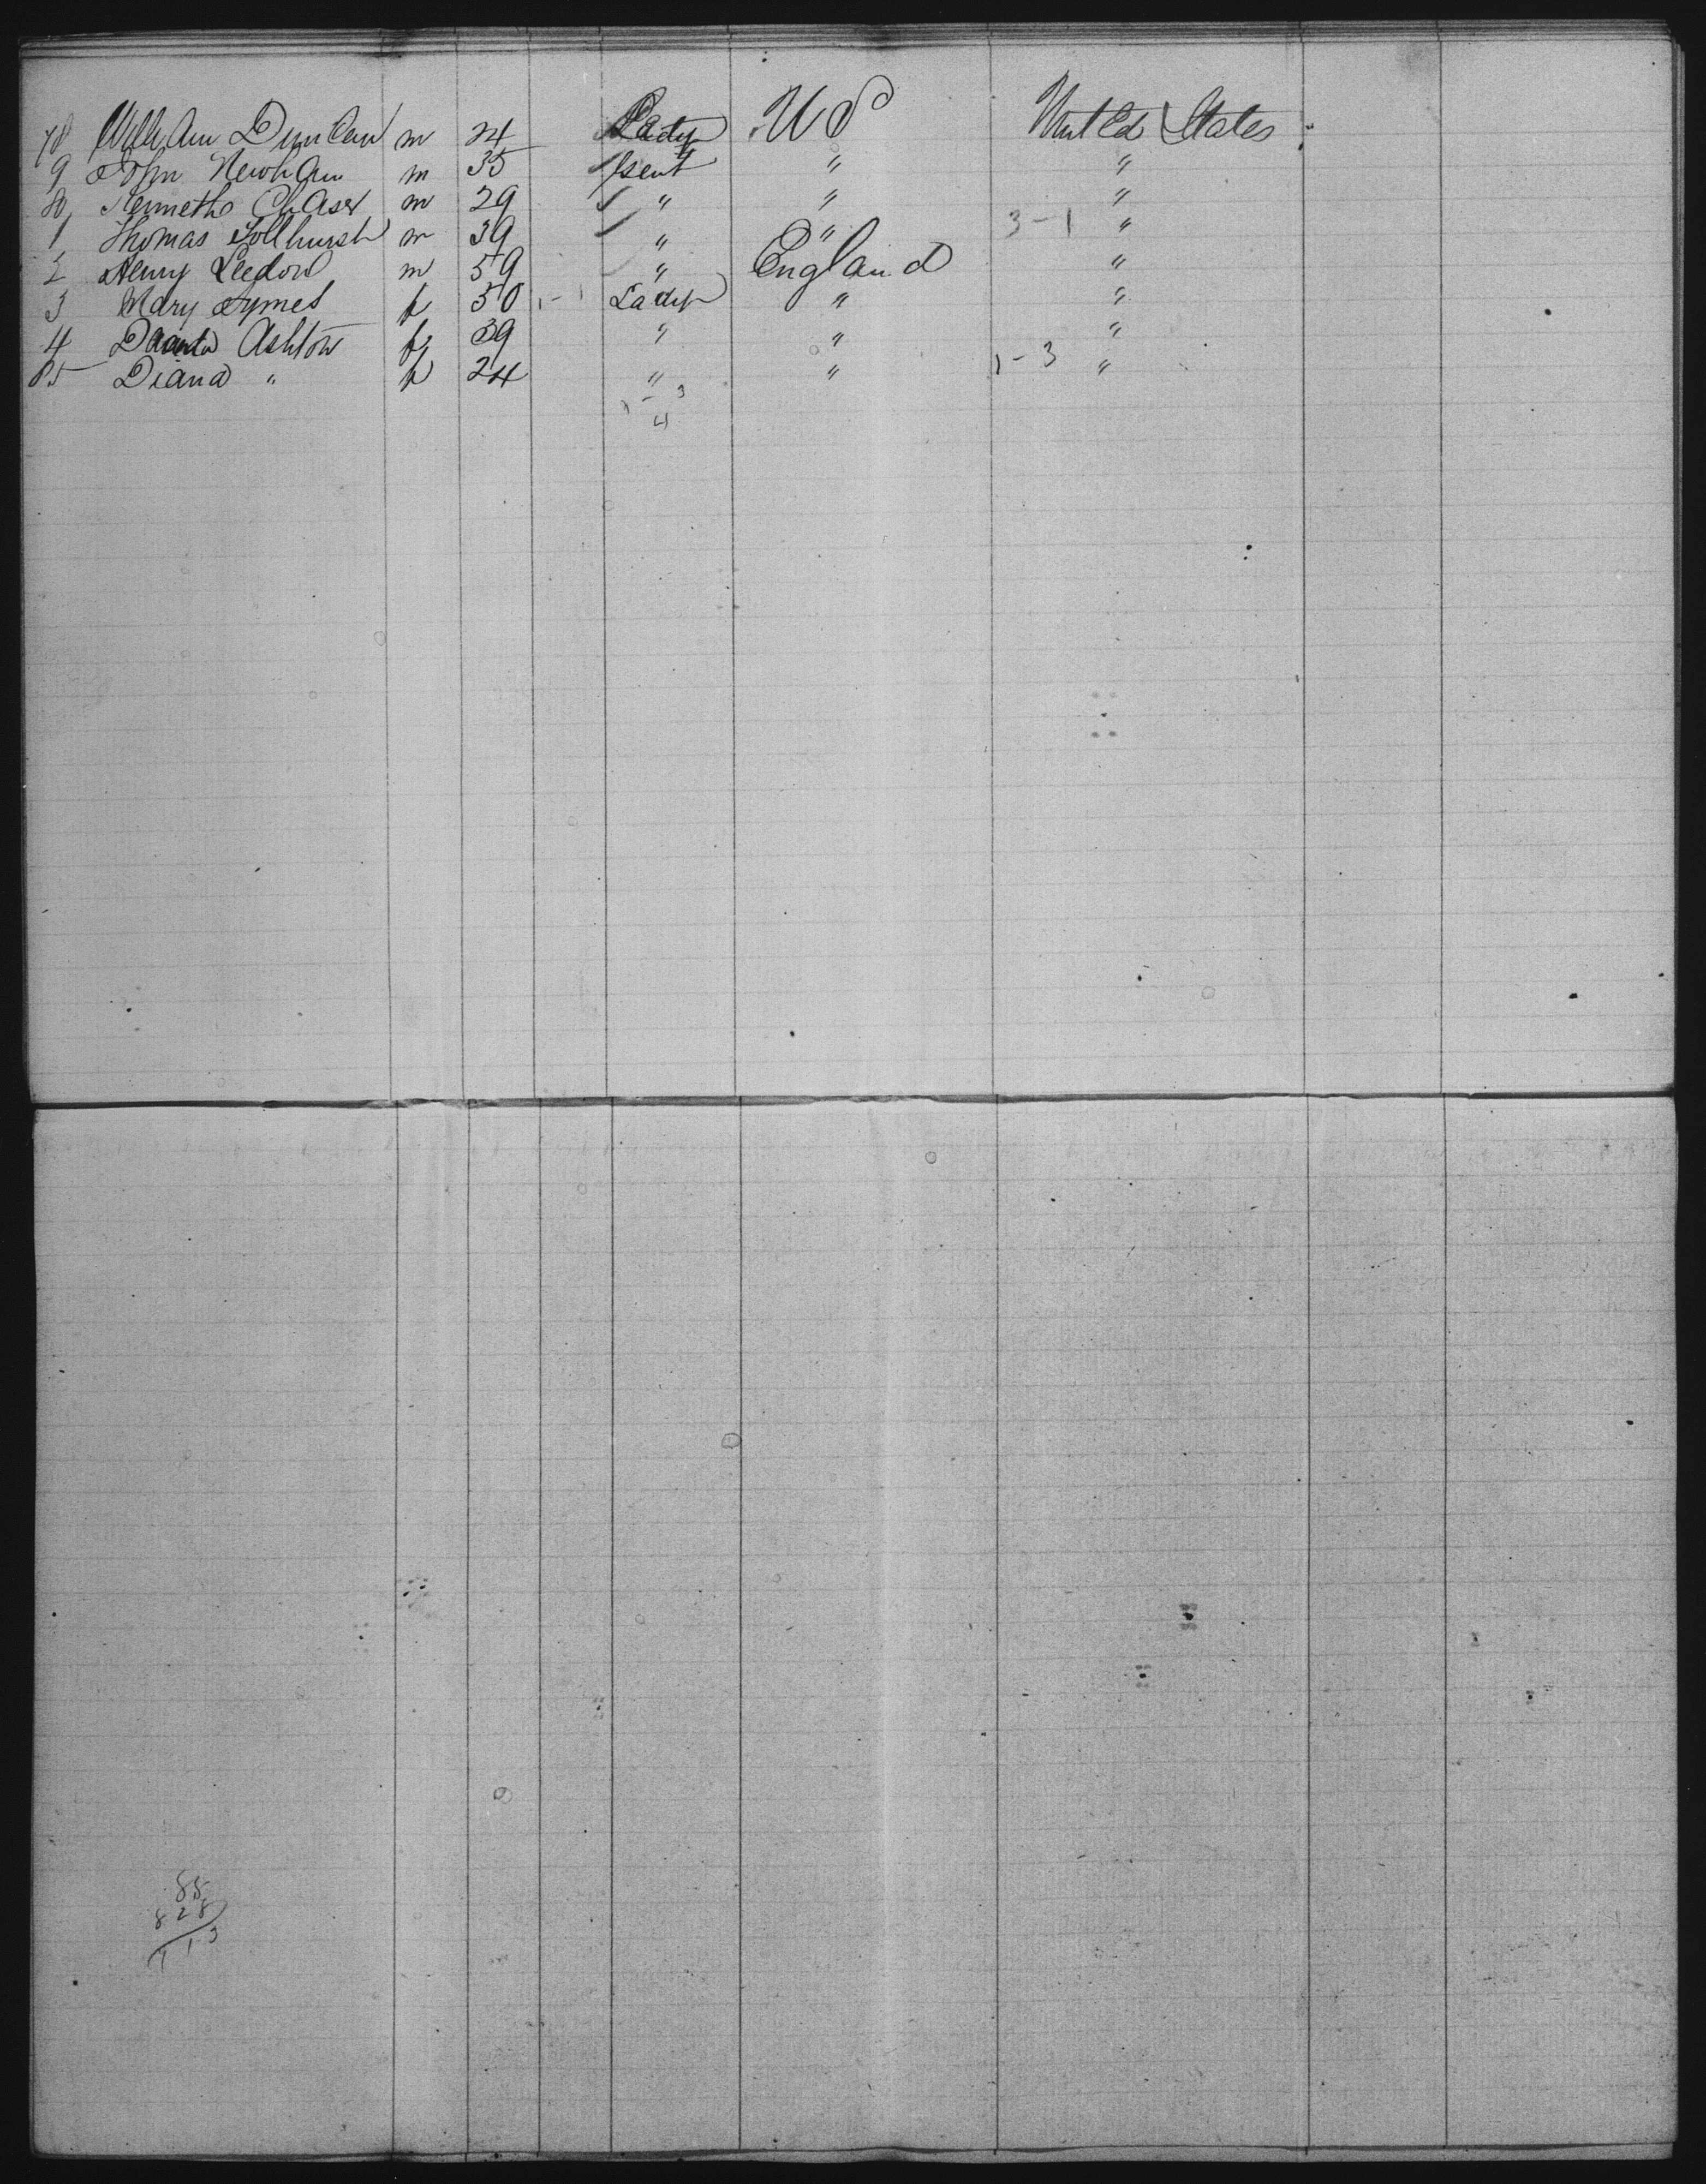 78 William Duncan m 24 Lady U S United States
9 John Newham m 35 Gent " "
80 Kenneth Chaser m 29 " " "
1 Thomas Tollhurst m 39 " " 3-1 "
2 Henry Leedow m 59 " England "
3 Mary Symes f 50 1-1 Lady " "
4 Ashton f 39 " " "
85 Diana " f 24 " " 1-3 "
1-3
4
85
828
913